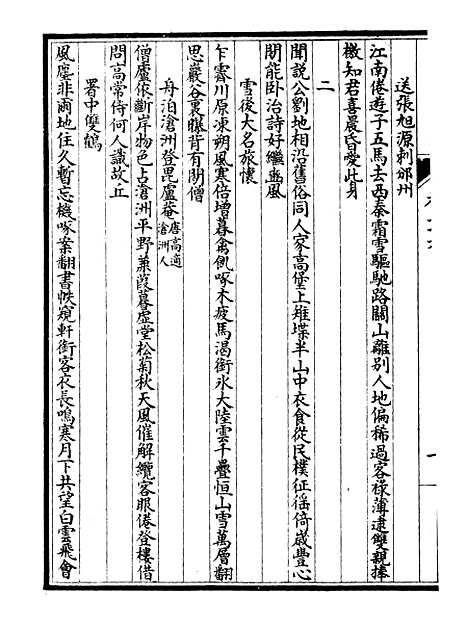 送張旭源刺邠州
江南倦遊子五馬去西秦霜雪驅馳路關山離別人地偏稀過客祿薄逮雙親捧
檄知君喜晨昏愛此身
二
聞說公劉地相沿舊俗同人家高堡上雉堞半山中衣食從民樸征徭倚歲豐心
閒能卧治詩好繼豳風
雪後大名旅懷
乍霽川原凍朔風寒倍增暮禽飢啄木疲馬渴銜氷大陸雲千疊恒山雪萬層翻
思巖谷裏曝背有閒僧
舟泊滄洲登毘盧菴唐高適滄洲人
僧廬依斷岸物色占滄洲平野蒹葭暮虛堂松菊秋天風催解纜客眼倦登樓借
問高常侍何人識故丘
署中雙鶴
風塵非爾地住久暫忘機啄案翻書帙窺軒銜客衣長鳴寒月下共望白雲飛會